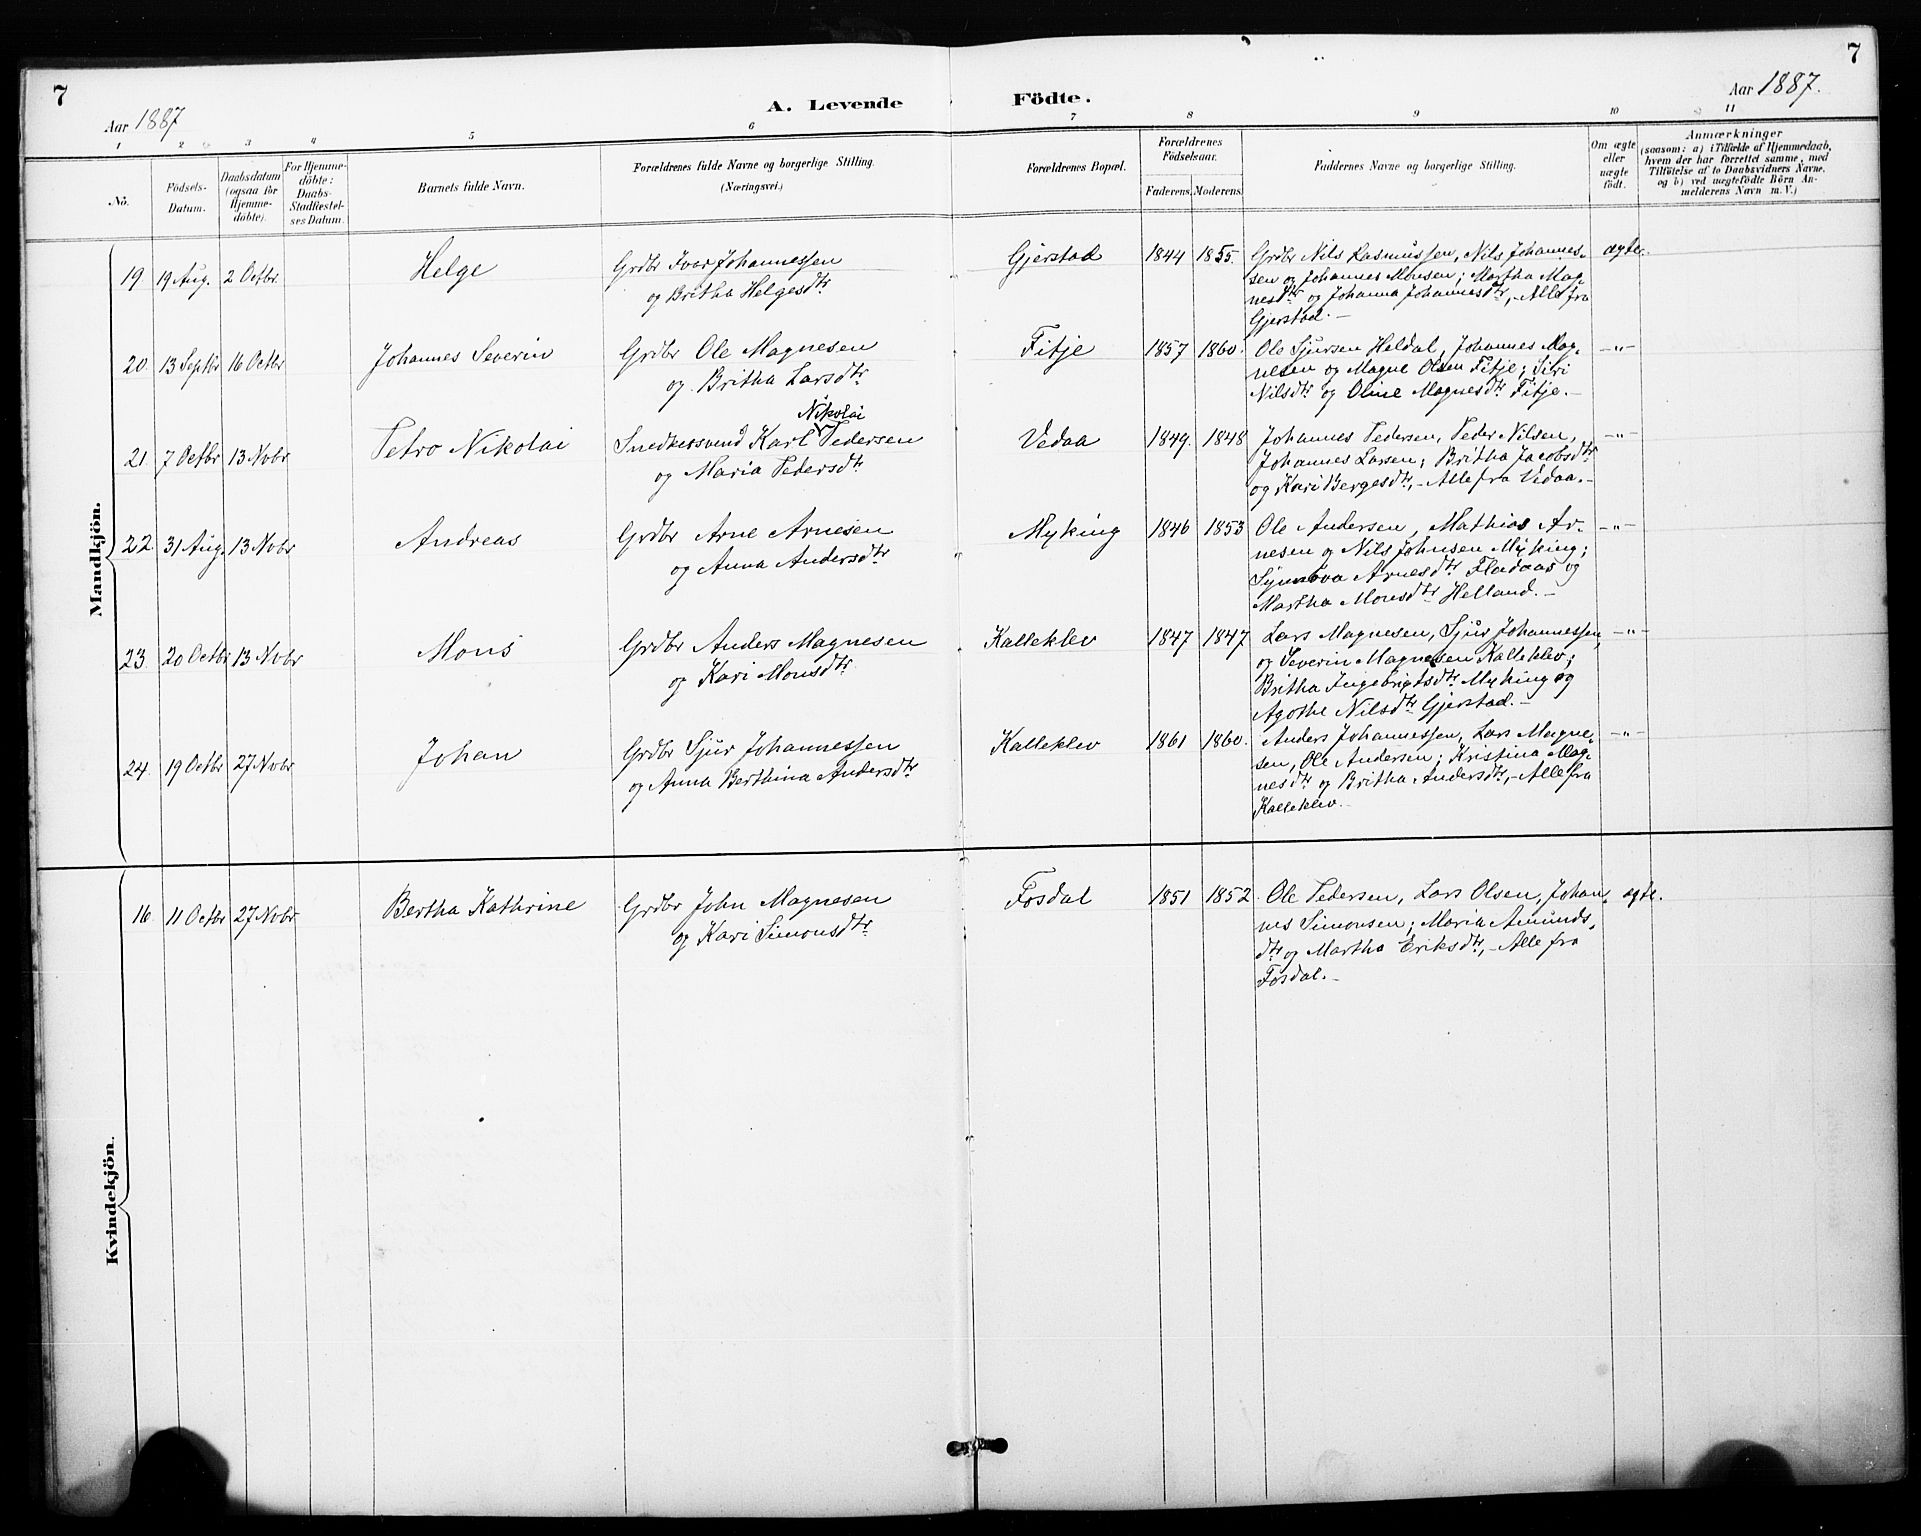 7
7
Aar 1887
A. Levende Födte.
Aar 1887.
1 2 3 4 5 6 7 8 9 10 11
No.
Födsels-
Datum.
Daabsdatum
(ogsaa for
Hjemme-
döbte).
For Hjemme-
döbte:
Daabs-
Stadfæstel-
ses Datum.
Barnets fulde Navn.
Forældrenes fulde Navne og borgerlige Stilling.
(Næringsvei.)
Forældrenes Bopæl.
Forældrenes
Födselsaar.
Faderens. Moderens.
Faddernes Navne og borgerlige Stilling.
Om ægte
eller
uægte
födt.
Anmærkninger
(saasom: a) i Tilfælde af Hjemmedaab,
hvem der har forrettet samme, med
Tilföielse af to Daabsvidners Navne,
og b) ved uægtefödte Börn An-
melderens Navn m. V.)
Mandkjön.
19. 19 Aug. 2 Octbr. Helge Grdbr Ivar Johannessen
og Britha Helgesdtr
Gjerstad 1844 1855.
Grdbr Nils Rasmussen, Nils Johannes-
sen og Johannes Monsen; Martha Mag-
nesdtr og Johanna Johannesdtr, - Alle fra
Gjerstad. -
ægte.
20. 13 Septbr 16 Octbr Johannes Severin Grdbr Ole Magnesen
og Britha Larsdtr
Fitje 1857 1860.
Ole Sjursen Heldal, Johannes Mag-
nesen og Magne Olsen Fitje; Siri
Nilsdtr og Oline Magnesdtr Fitje. -
-"-
21. 7 Octbr 13 Novbr Petro Nikolai
Nikolai
Snedkersvend Karl Pedersen
og Maria Pedersdtr
Vedaa 1849. 1848
Johannes Pedersen, Peder Nilsen,
Johannes Larsen; Britha Jacobsdtr
og Kari Bergesdtr, - Alle fra Vedaa. -
-"-
22. 31 Aug. 13 Novbr Andreas Grdbr Arne Arnesen
og Anna Andersdtr
Myking 1846 1853
Ole Andersen, Mathias Ar-
nesen og Nils Johnsen Myking;
Synnöva Arnesdtr Fladaas og
Martha Monsdtr Helland. -
-"-
23. 20 Octbr 13 Novbr Mons Grdbr Anders Magnesen
og Kari Monsdtr
Kalleklev 1847 1847
Lars Magnesen, Sjur Johannessen,
og Severin Magnesen Kalleklev;
Britha Ingebrigtsdtr Myking og
Agothe Nilsdtr Gjerstad. -
-"-
24. 19 Octbr 27 Novbr Johan Grdbr Sjur Johannessen
og Anna Berthina Andersdtr
Kalleklev 1861 1860.
Anders Johannessen, Lars Magne-
sen, Ole Andersen; Kristina Mag-
nesdtr og Britha Andersdtr, - Alle fra
Kalleklev. -
-"-
Kvindekjön.
16 11 Octbr 27 Novbr Bertha Kathrine Grdbr John Magnesen
og Kari Simonsdtr
Fosdal 1851 1852
Ole Pedersen, Lars Olsen, Johan-
nes Simonsen; Maria Amunds-
dtr og Martha Eriksdtr, - Alle fra
Fosdal. -
ægte.